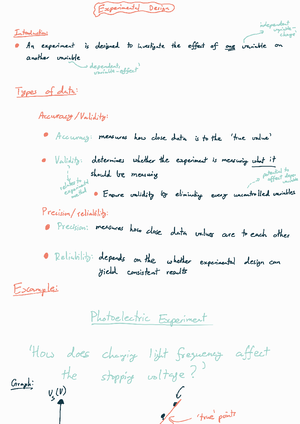 Experimental Design
Introduction
independent
variable -
change
• An experiment is designed to investigate the effect of one variable on
another variable
dependent
variable - effect
Types of data:
Accuracy/Validity:
• Accuracy: measures how close data is to the 'true value'
• Validity: determines whether the experiment is measuring what it
should be measuring
relates to
experimental
method
potential to
affect depen
variable
• Ensure validity by eliminating every uncontrolled variables
Precision/reliability:
• Precision: measures how close data values are to each other
• Reliability: depends on the whether experimental design can
yield consistent results
Example:
Photoelectric Experiment
'How does changing light frequency affect
the stopping voltage?'
Graph:
Vs (V)
'true' points